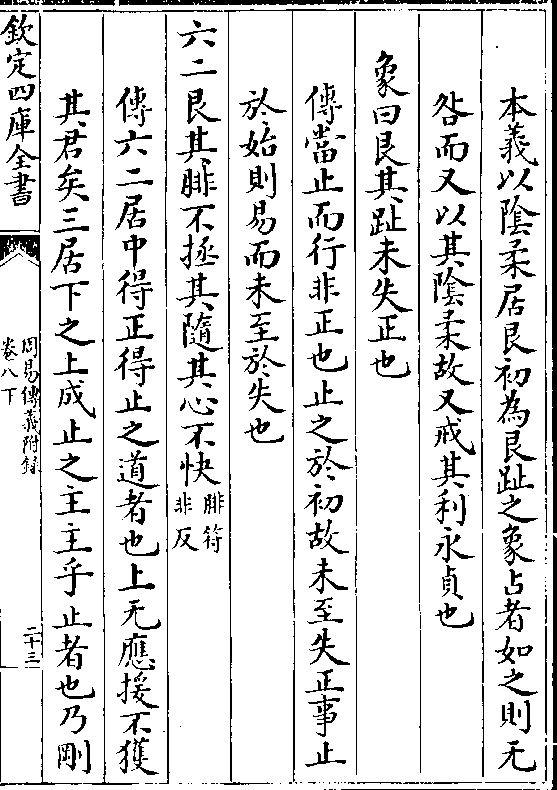 本義以陰柔居艮初為艮趾之象占者如之則无
咎而又以其陰柔故又戒其利永貞也
象曰艮其趾未失正也
傳當止而行非正也止之於初故未至失正事止
於始則易而未至於失也
六二艮其腓不拯其隨其心不快腓符非反
傳六二居中得正得止之道者也上无應援不獲
其君矣三居下之上成止之主主乎止者也乃剛
欽定四庫全書
周易傳義附録
卷八下
二十三